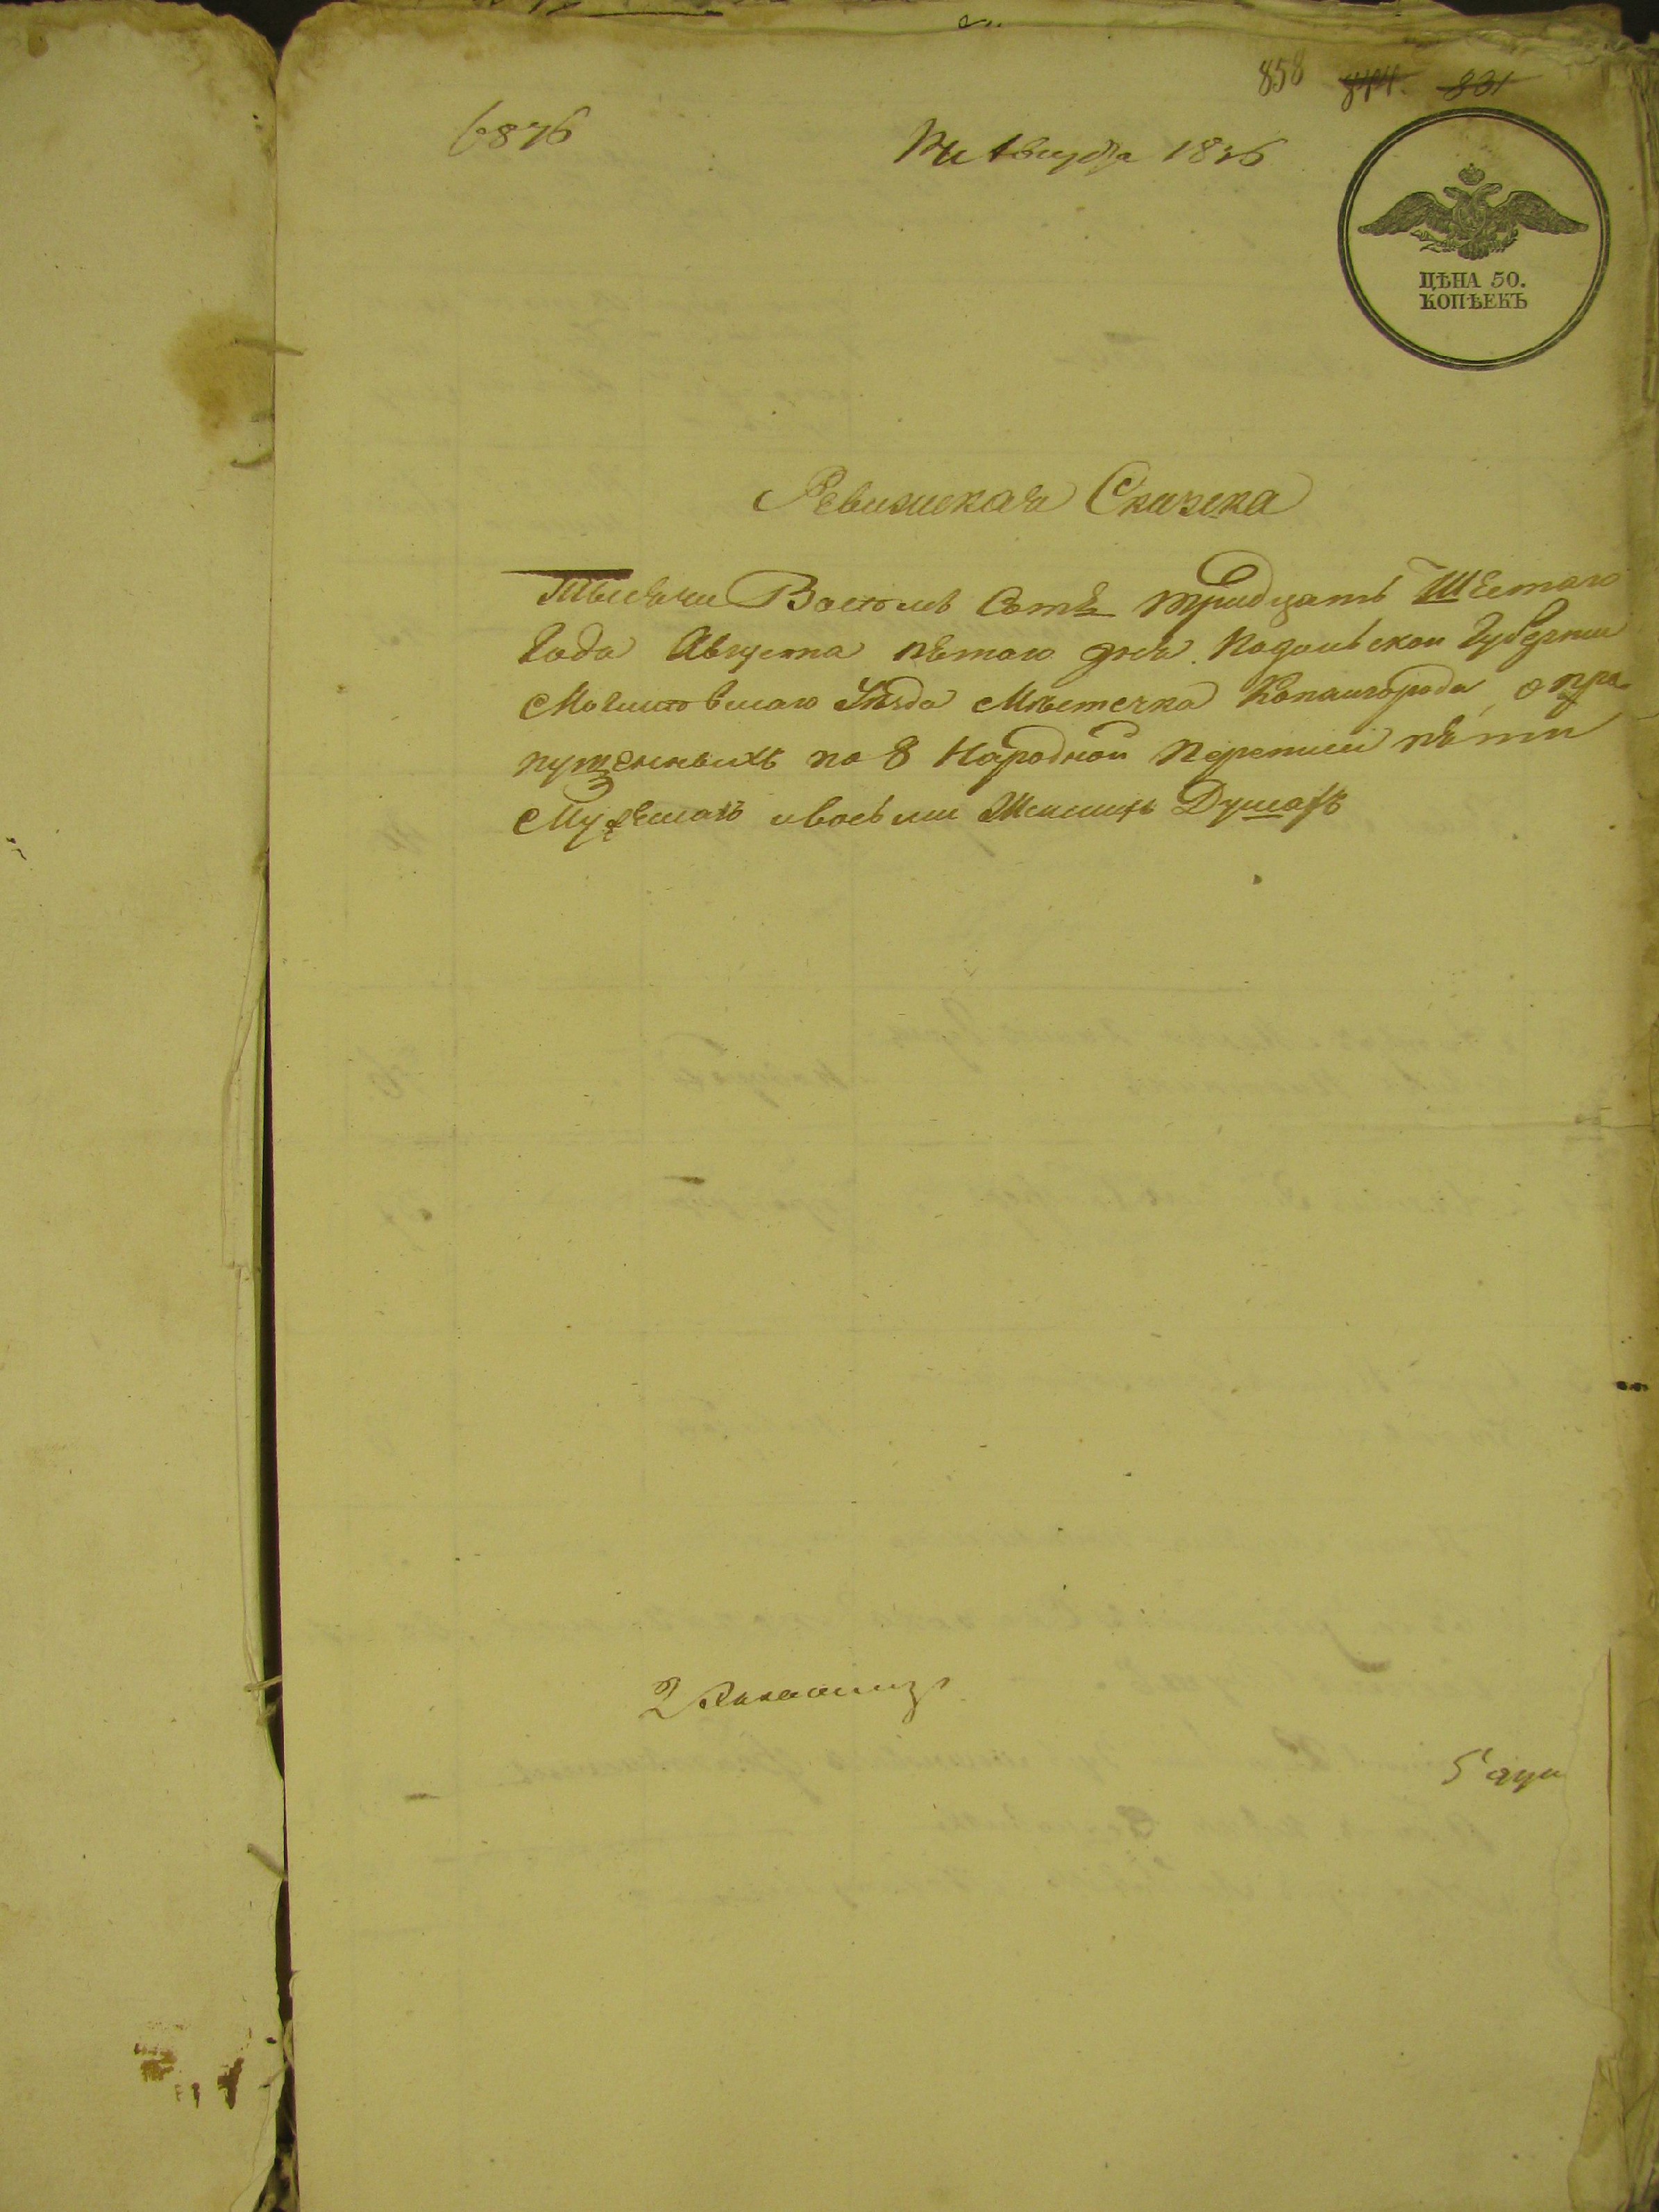 858 844. 831
6876
Августа 1836
ЦѢНА 50.
КОПѢЕКЪ
Ревизская Сказка
Тысяча Восемь Сотъ тридцать Шестаго
Года Августа пятаго дня. Подольской Губерніи
Могилевскаго Уѣзда Мѣстечка Копайгорода, о про
пущенныхъ по 8 Народной Переписи пяти
Мужескахъ и восьми Женскихъ Душахъ
2
5 душ